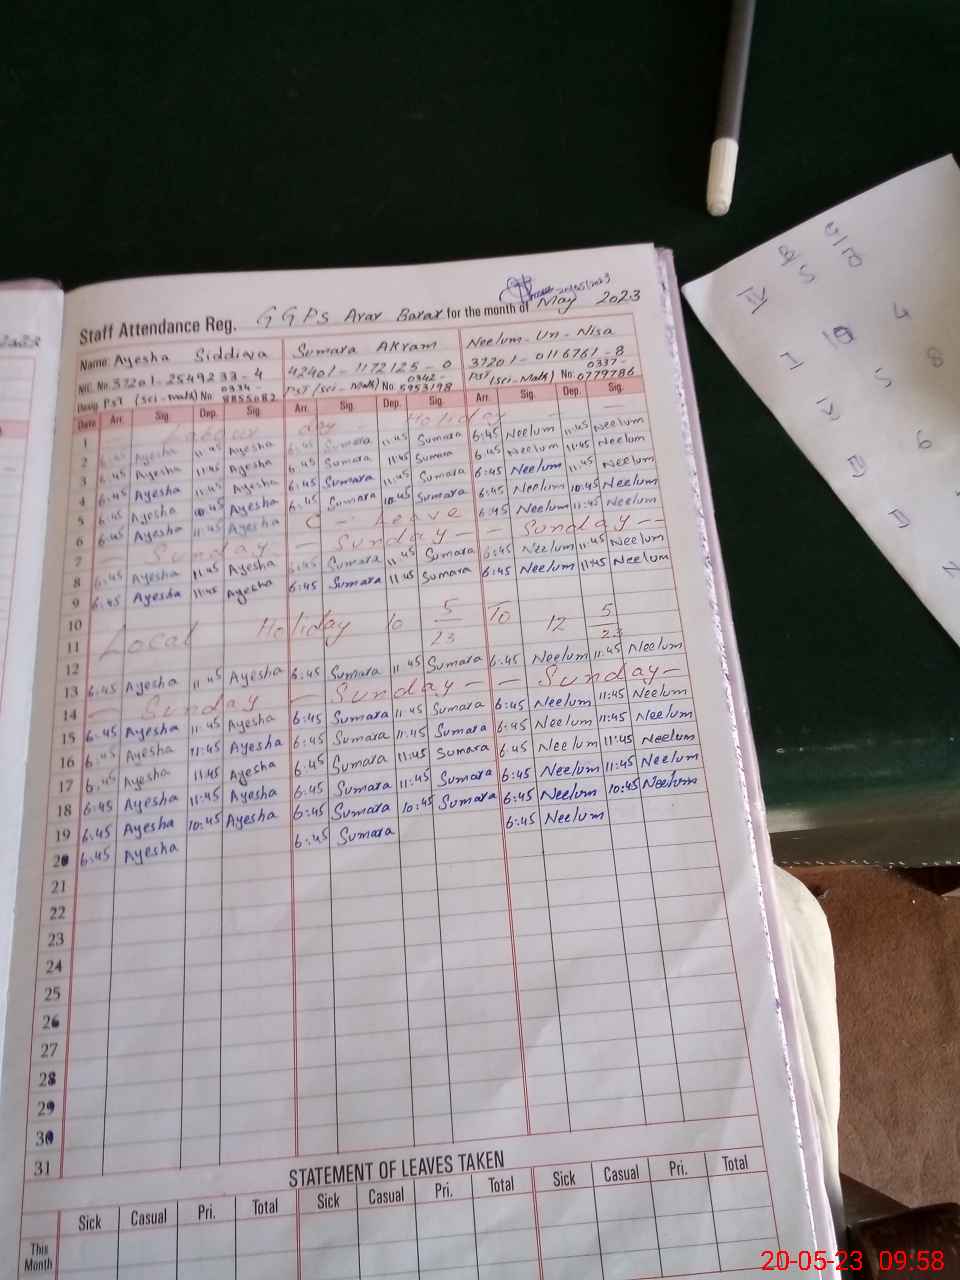 20/05/2023
Staff Attendance Reg. GGPS Arar Barar for the month of May 2023
Name: Ayesha Siddiqa Sumara Akram Neelum-Un-Nisa
NIC. No. 37201-2549233-4 42401-1172125-0 37201-0116761-8
Desig PST (sci-math) No. 0334-8855082 PST (sci-math) No. 0342-5953198 PST (sci-math) No. 0337-0779786
Date Arr. Sig. Dep. Sig. Arr. Sig. Dep. Sig. Arr. Sig. Dep. Sig.
1 Labour day - Holiday
2 6:45 Ayesha 11:45 Ayesha 6:45 Sumara 11:45 Sumara 6:45 Neelum 11:45 Neelum
3 6:45 Ayesha 11:45 Ayesha 6:45 Sumara 11:45 Sumara 6:45 Neelum 11:45 Neelum
4 6:45 Ayesha 11:45 Ayesha 6:45 Sumara 11:45 Sumara 6:45 Neelum 11:45 Neelum
5 6:45 Ayesha 10:45 Ayesha 6:45 Sumara 10:45 Sumara 6:45 Neelum 10:45 Neelum
6 6:45 Ayesha 11:45 Ayesha C - Leave 6:45 Neelum 11:45 Neelum
7 - Sunday - Sunday - - Sunday --
8 6:45 Ayesha 11:45 Ayesha 6:45 Sumara 11:45 Sumara 6:45 Neelum 11:45 Neelum
9 6:45 Ayesha 11:45 Ayesha 6:45 Sumara 11:45 Sumara 6:45 Neelum 11:45 Neelum
10
11 Local Holiday 10 5/23 To 12 5/23
12
13 6:45 Ayesha 11:45 Ayesha 6:45 Sumara 11:45 Sumara 6:45 Neelum 11:45 Neelum
14 - Sunday - Sunday - - Sunday -
15 6:45 Ayesha 11:45 Ayesha 6:45 Sumara 11:45 Sumara 6:45 Neelum 11:45 Neelum
16 6:45 Ayesha 11:45 Ayesha 6:45 Sumara 11:45 Sumara 6:45 Neelum 11:45 Neelum
17 6:45 Ayesha 11:45 Ayesha 6:45 Sumara 11:45 Sumara 6:45 Neelum 11:45 Neelum
18 6:45 Ayesha 11:45 Ayesha 6:45 Sumara 11:45 Sumara 6:45 Neelum 11:45 Neelum
19 6:45 Ayesha 10:45 Ayesha 6:45 Sumara 10:45 Sumara 6:45 Neelum 10:45 Neelum
20 6:45 Ayesha 6:45 Sumara 6:45 Neelum
21
22
23
24
25
26
27
28
29
30
31
STATEMENT OF LEAVES TAKEN
Sick Casual Pri. Total Sick Casual Pri. Total Sick Casual Pri. Total
This
Month
20-05-23 09:58